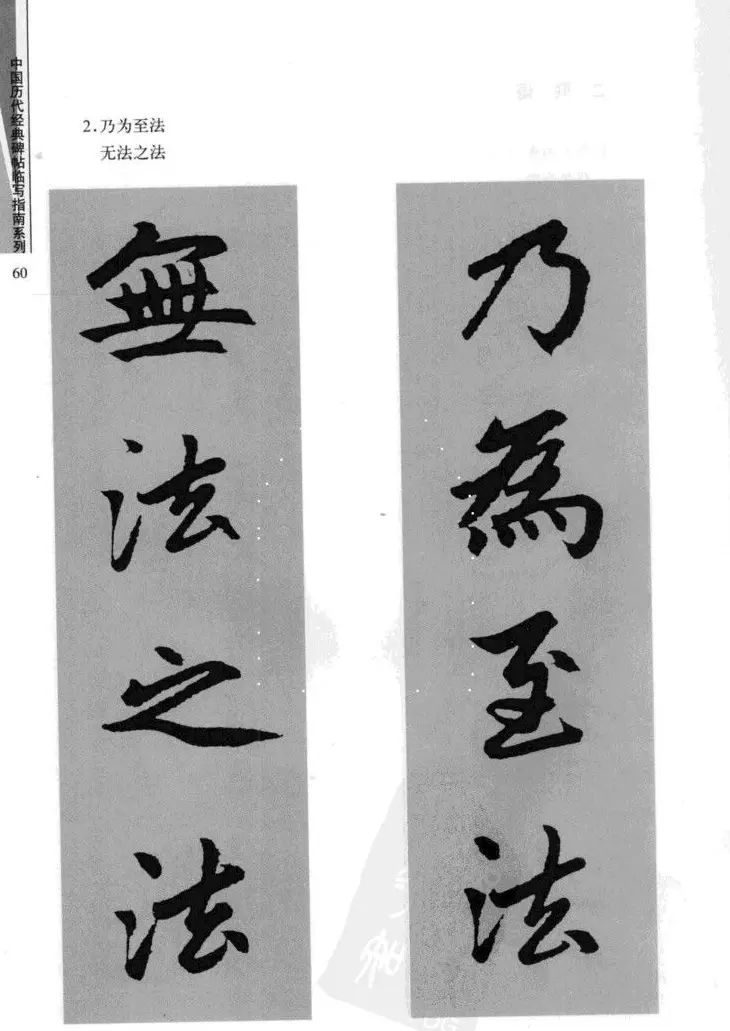 中国历代经典碑帖临写指南系列
60
2.乃为至法
无法之法
乃為至法
無法之法